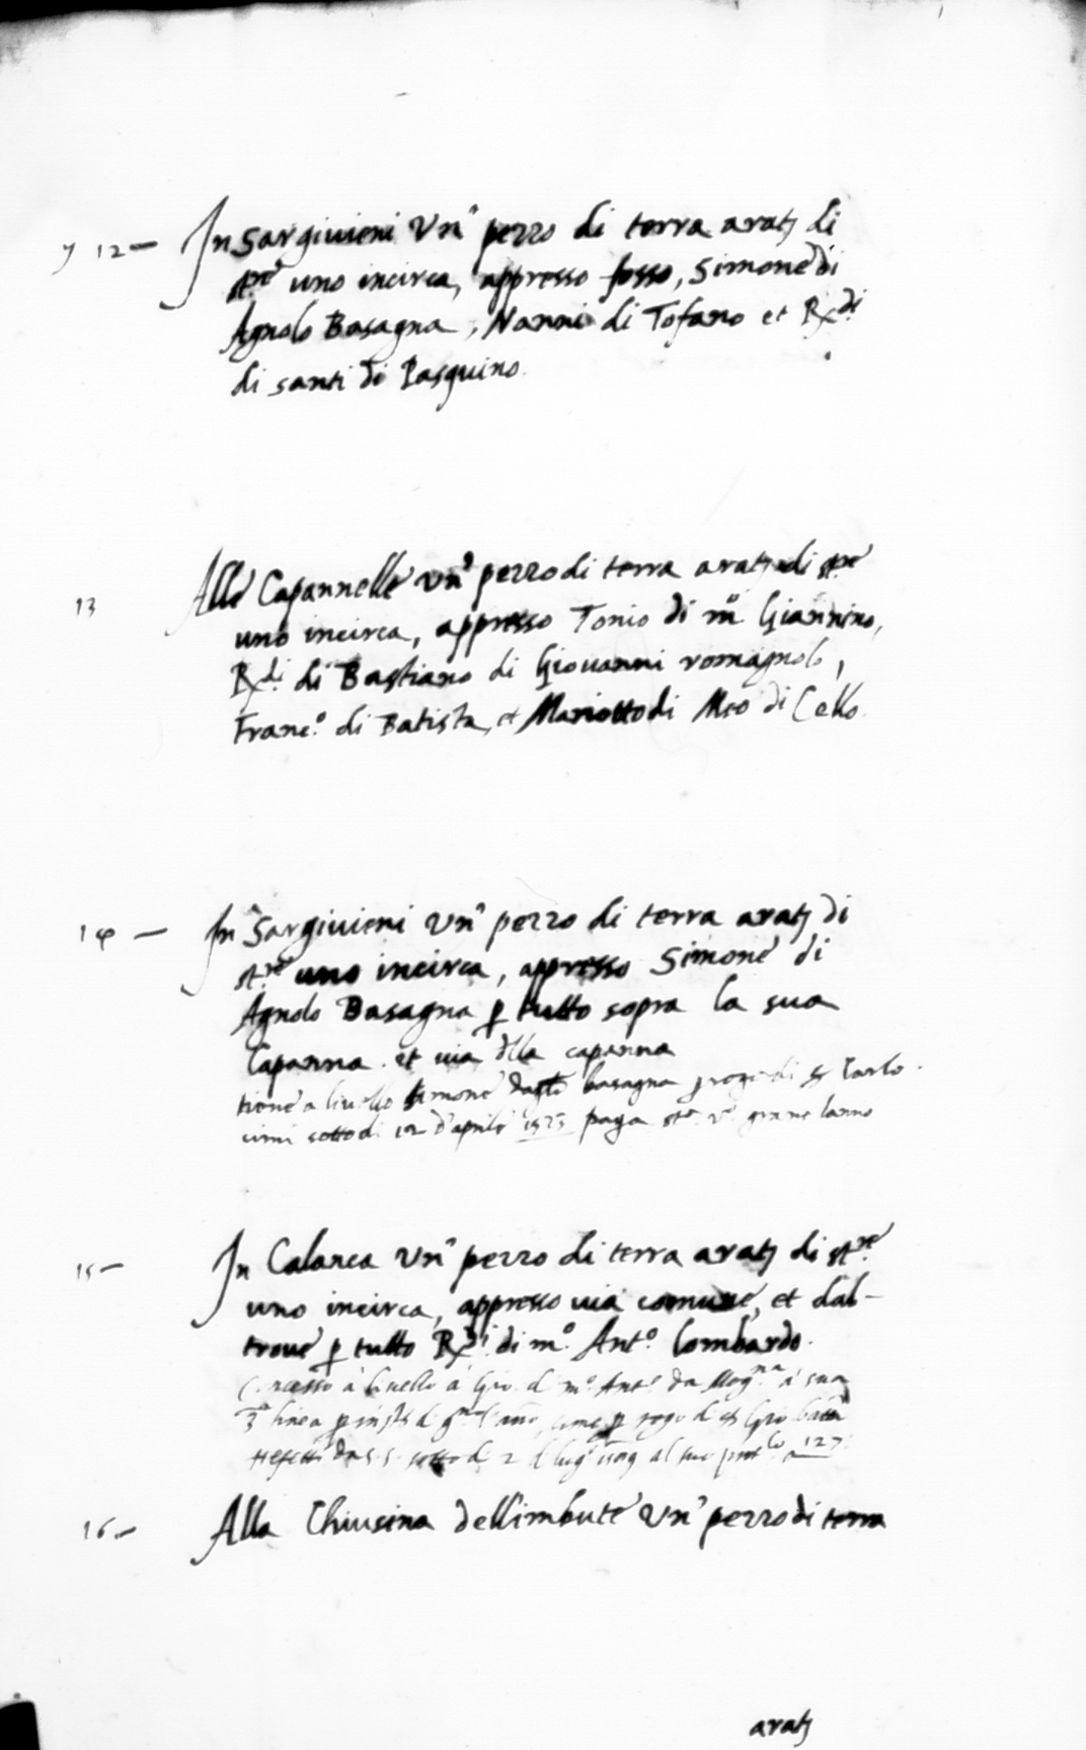 7 12 – In Sargiuieni Un' pezzo di terra arat; di
st.re uno incirca, appresso fosso, Simone di
Agnolo Basagna, Nanni di Tofano et R.di
di santi di Pasquino.
13 Alle Capannelle un' pezzo di terra arat; di st.re
uno incirca, appresso Tonio di m.o Giannino,
R.di di Bastiano di Giovanni romagnolo,
Franc.o di Batista, et Mariotto di Meo di Cello.
14 – In Sargiuieni Un' pezzo di terra arat; di
st.re uno incirca, appresso Simone di
Agnolo Basagna p tutto sopra la sua
Capanna. et uia dlla capanna
tiene a liuello Simone basagna rogo di Carlo
sotto di 12 d'aprile paga grano lanno
15 – In Calanca Un' pezzo di terra arat; di st.re
uno incirca, appresso uia comune, et dal–
troue p tutto R.di di m.o Ant.o lombardo.
a liuello a Gio. d m.o Ant.o da a sua
3a linea p rogo d Gio batta
sotto d 2 d lug.o al suo 127
16 – Alla Chiusina dell'imbute Un' pezzo di terra
arat;